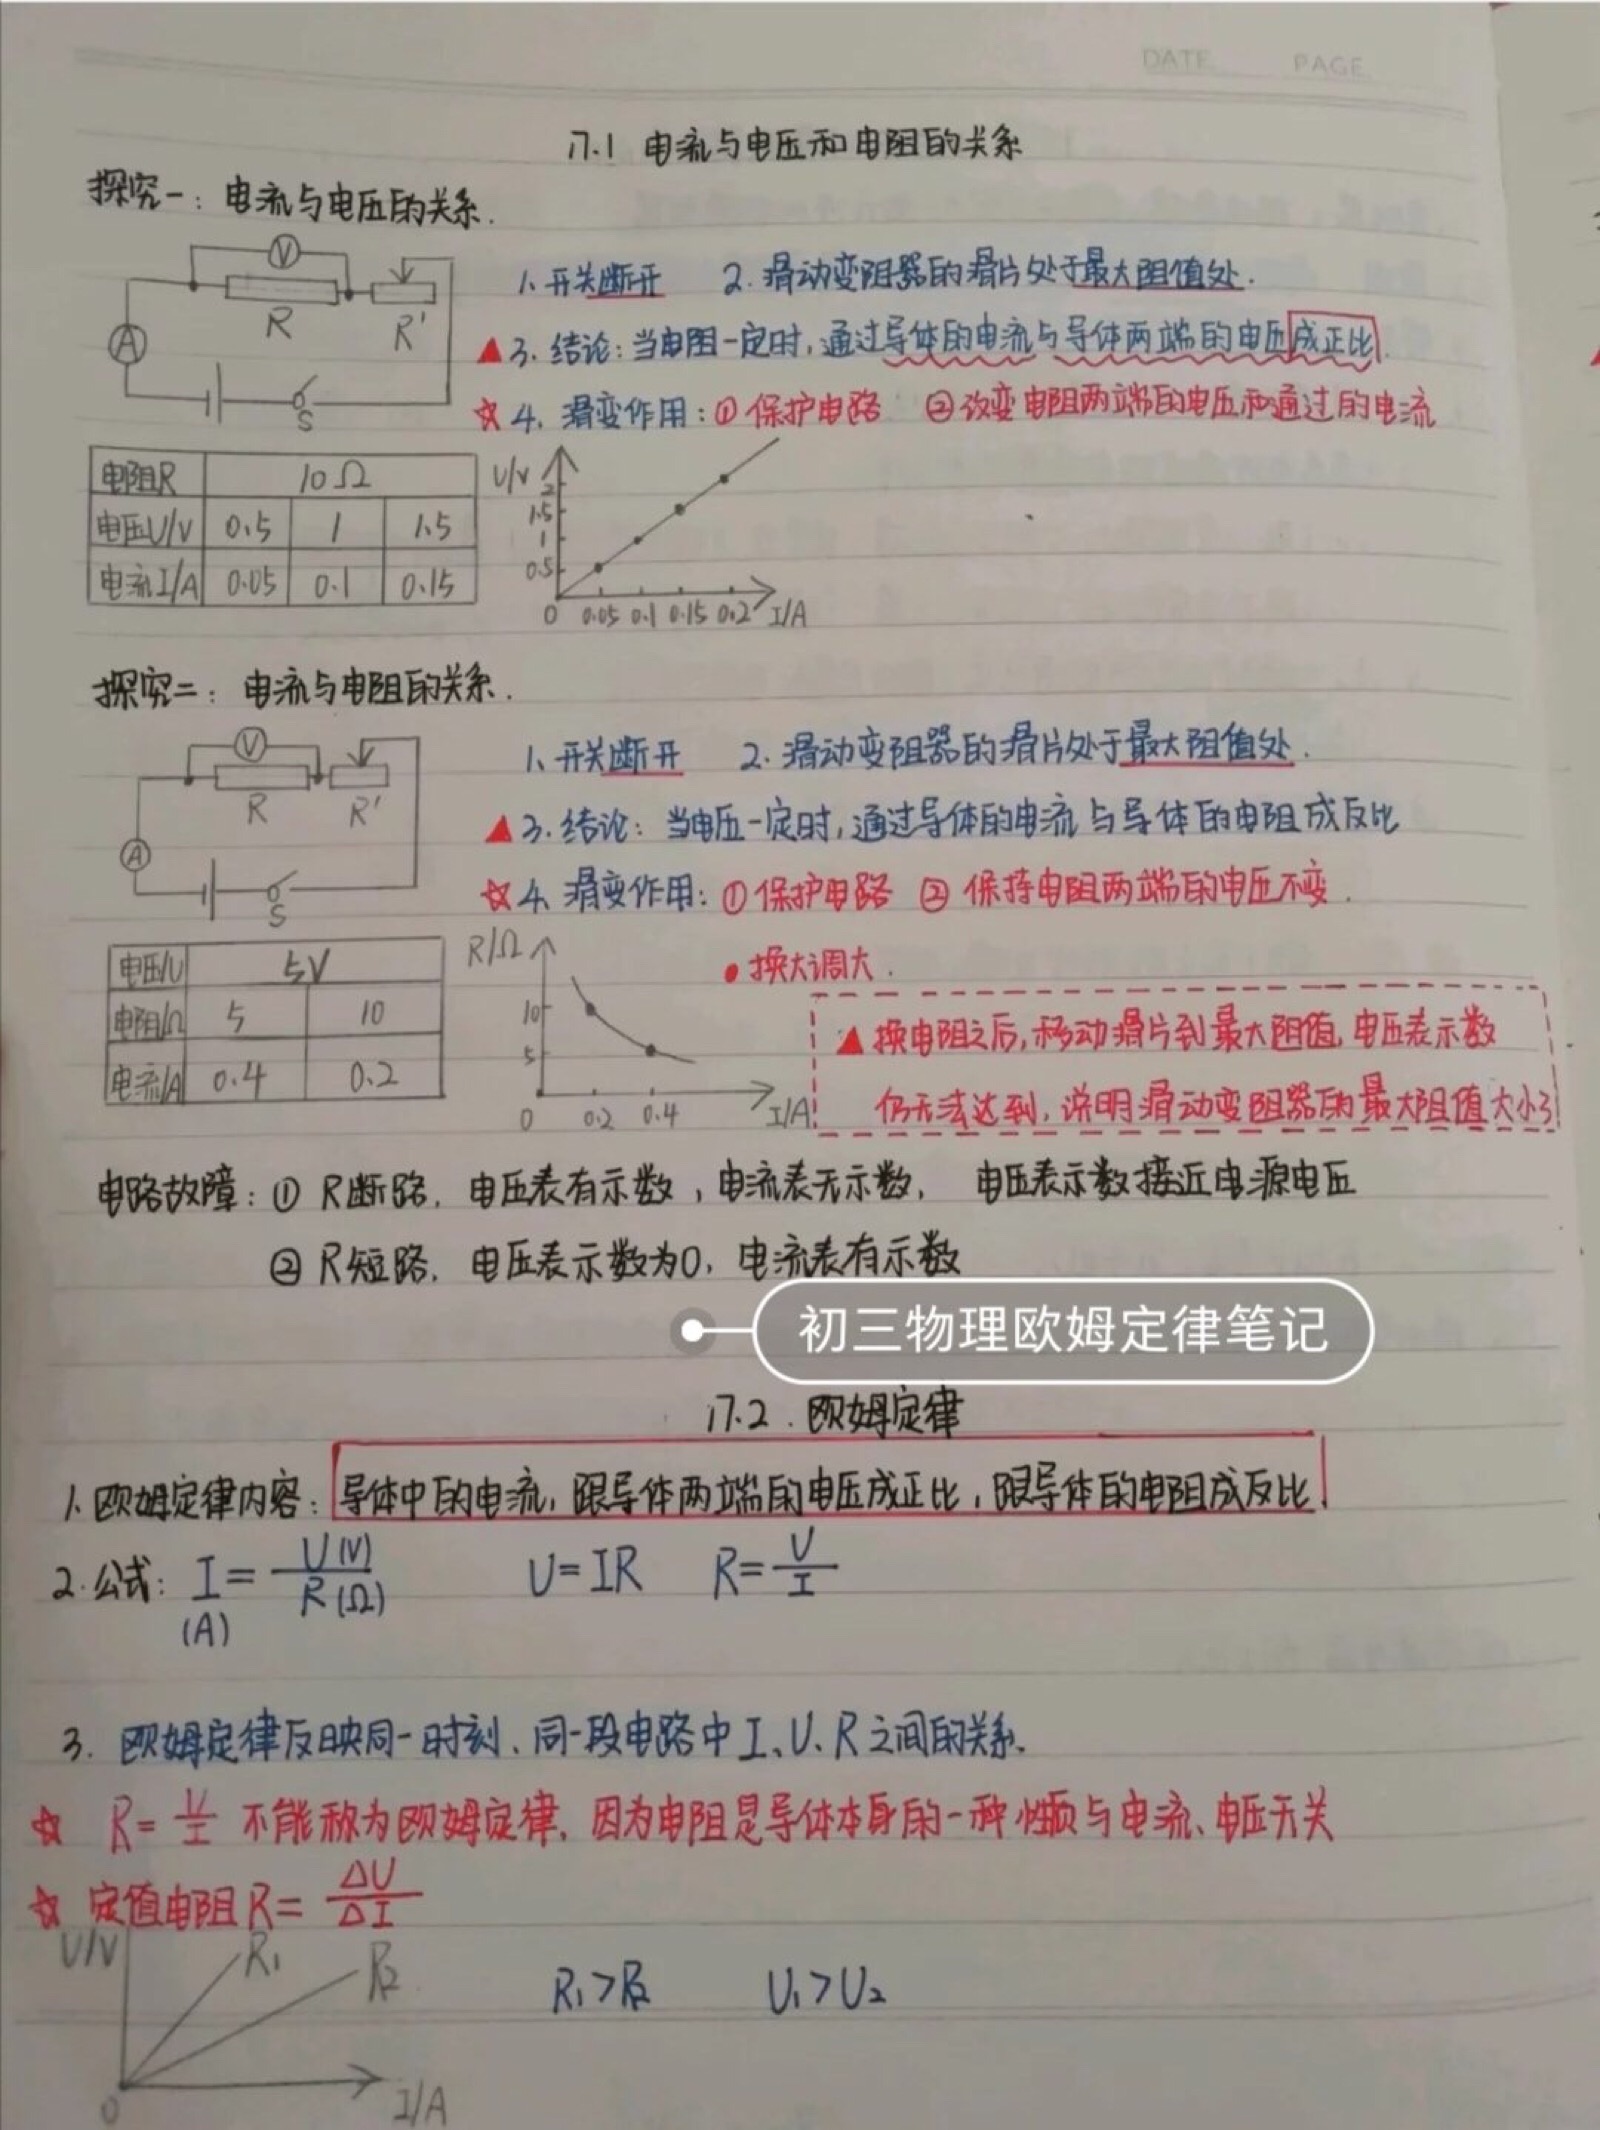 DATE PAGE
17.1 电流与电压和电阻的关系
探究一：电流与电压的关系.
V
R
R'
A
S
1、开关断开 2. 滑动变阻器的滑片处于最大阻值处.
▲3. 结论：当电阻一定时，通过导体的电流与导体两端的电压成正比.
☆4. 滑变作用：①保护电路 ②改变电阻两端的电压和通过的电流
电阻R 10Ω
电压U/V 0.5 1 1.5
电流I/A 0.05 0.1 0.15
U/V
2
1.5
1
0.5
0 0.05 0.1 0.15 0.2 I/A
探究二：电流与电阻的关系.
V
R
R'
A
S
1、开关断开 2. 滑动变阻器的滑片处于最大阻值处.
▲3. 结论：当电压一定时，通过导体的电流与导体的电阻成反比
☆4. 滑变作用：①保护电路 ②保持电阻两端的电压不变.
电压/U 5V
电阻/Ω 5 10
电流/A 0.4 0.2
R/Ω
10
5
0 0.2 0.4 I/A
●换大调大.
▲换电阻之后，移动滑片到最大阻值，电压表示数
仍无法达到，说明滑动变阻器的最大阻值太小了
电路故障：①R断路，电压表有示数，电流表无示数， 电压表示数接近电源电压
②R短路，电压表示数为0，电流表有示数
初三物理欧姆定律笔记
17.2. 欧姆定律
1. 欧姆定律内容：导体中的电流，跟导体两端的电压成正比，跟导体的电阻成反比.
2. 公式： I(A)=U(V)/R(Ω) U=IR R=U/I
3. 欧姆定律反映同一时刻、同一段电路中I、U、R之间的关系.
☆ R=U/I 不能称为欧姆定律，因为电阻是导体本身的一种性质与电流、电压无关
☆ 定值电阻R=ΔU/ΔI
U/V
R₁
R₂
R₁>R₂ U₁>U₂
0
I/A